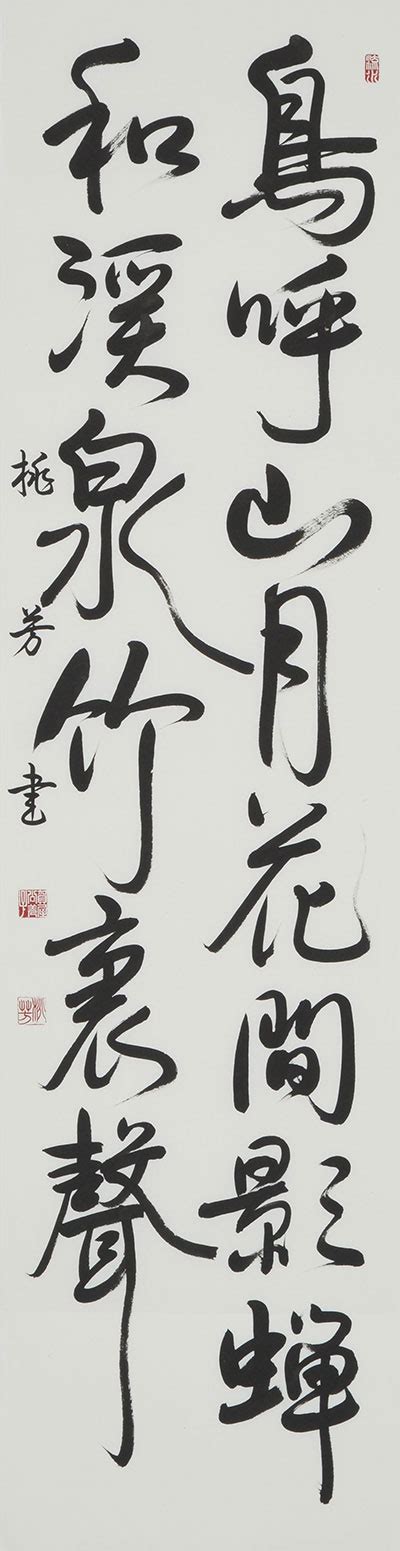 鳥呼山月花間影蝉
和渓泉竹裏聲
桃芳書